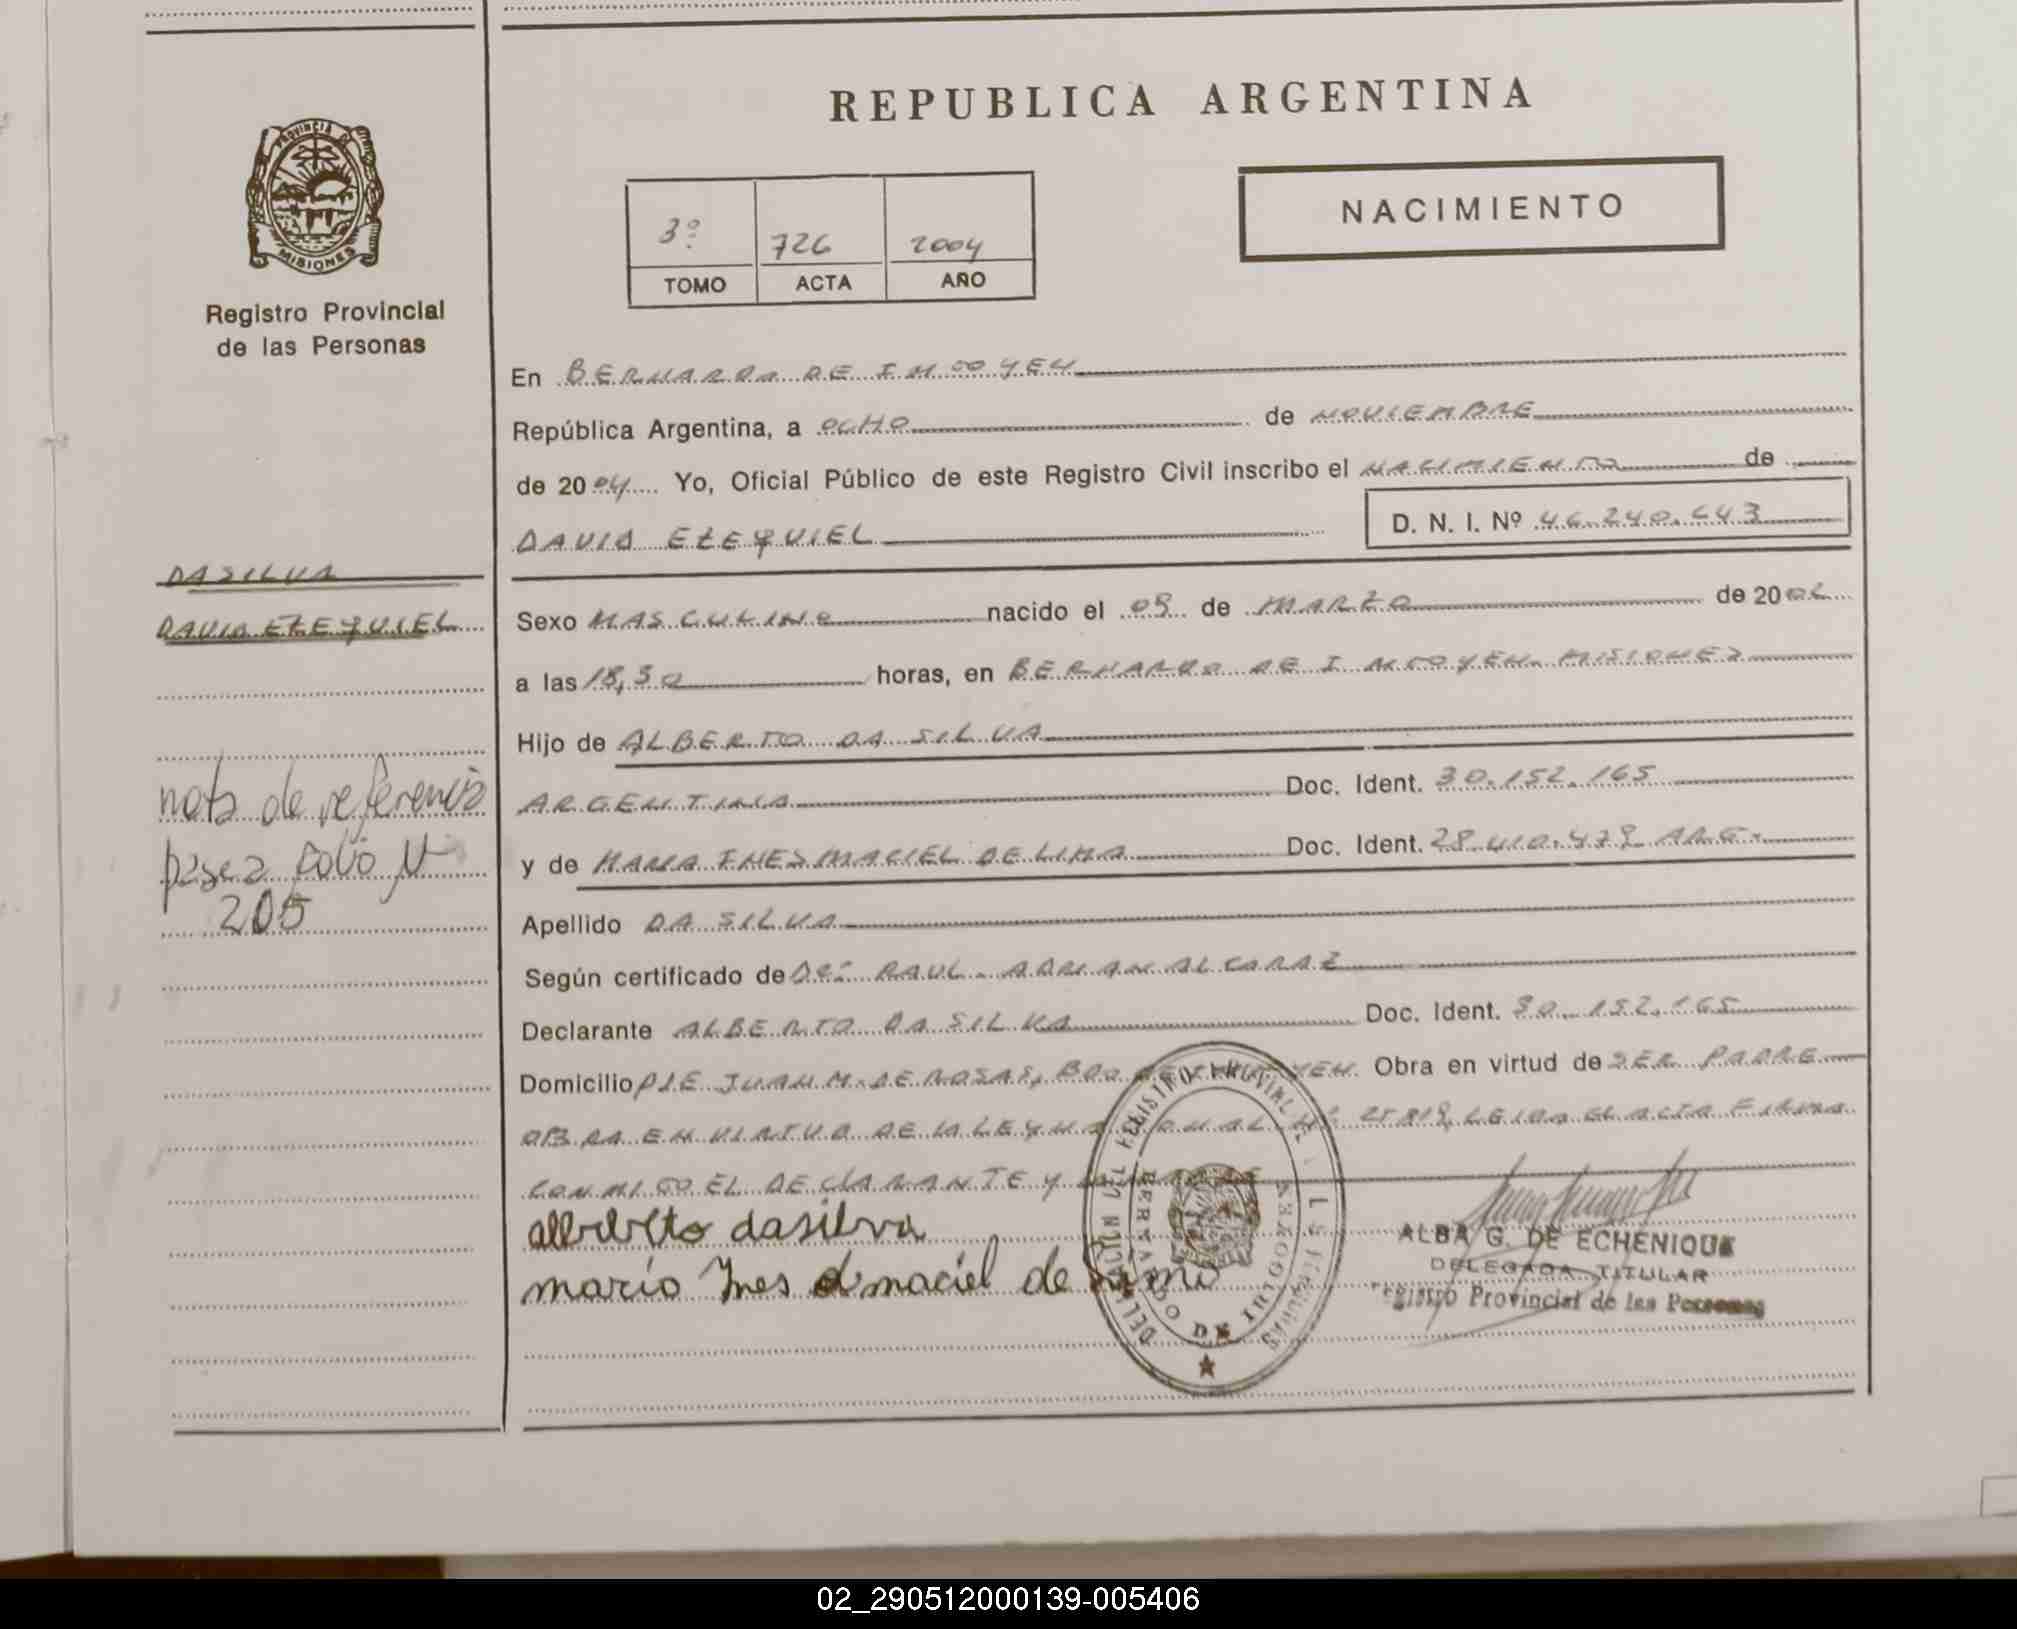 REPUBLICA ARGENTINA
PROVINCIA DE
MISIONES
Registro Provincial
de las Personas
3º 726 2004
TOMO ACTA AÑO
NACIMIENTO
En BERNARDO DE IRIGOYEN
República Argentina, a OCHO de NOVIEMBRE
de 2004 Yo, Oficial Público de este Registro Civil inscribo el NACIMIENTO de
DAVID EZEQUIEL D. N. I. Nº 46.240.643
DASILVA
DAVID EZEQUIEL
Sexo MASCULINO nacido el 09 de MARZO de 2002
a las 18,30 horas, en BERNARDO DE IRIGOYEN. MISIONES
Hijo de ALBERTO DA SILVA
ARGENTINA Doc. Ident. 30.152.165
y de MARIA INES MACIEL DE LIMA Doc. Ident. 28.410.479 ARG.
nota de referencia
pasa a folio Nº
205
Apellido DA SILVA
Según certificado de Dr. RAUL ADRIAN ALCARAZ
Declarante ALBERTO DA SILVA Doc. Ident. 30.152.165
Domicilio PJE JUAN M. DE ROSAS, BDO DE Obra en virtud de SER PADRE
OBRA EN VIRTUD DE LA LEY LEIDA EL ACTA FIRMA
CONMIGO EL DECLARANTE Y
alberto dasilva
maria Ines maciel de lima
DELEGACION DEL REGISTRO PROVINCIAL DE LAS PERSONAS
BERNARDO DE IRIGOYEN
ALBA G. DE ECHENIQUE
DELEGADA TITULAR
Registro Provincial de las Personas
02_290512000139-005406